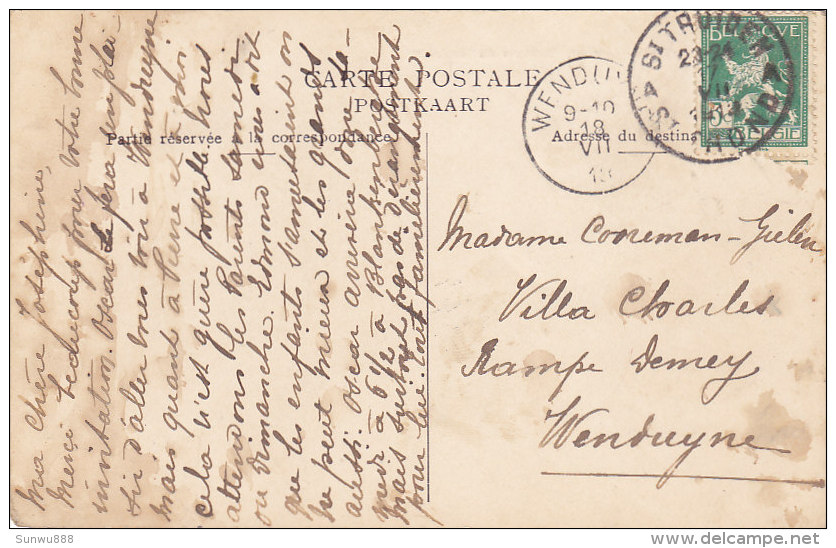 CARTE POSTALE
POSTKAART
Partie réservée à la correspondance
Adresse du destina
BELGIQUE
BELGIË
ST TRUIDEN
23-24
VII
ST TROND
WENDU
9-10
18
VII
Ma chère Joséphine,
Merci beaucoup pour votre bonne
invitation. Oscar se fera un plai-
sir d'aller vous voir à Wenduyne
mais quant à Pierre et moi
cela n'est guère possible, nous
attendons les Parents Samedi
ou Dimanche. Edmond nous a dit
que les enfants s'amusaient on
ne peut mieux et les grands
aussi. Oscar arrivera donc Sa-
medi à 6 1/2 à Blankenberghe
mais surtout pas de dérangement
pour lui. Tout familièrement.
Madame Cooreman-Gielen
Villa Charles
Rampe Demey
Wenduyne
Sunwu888
DELCAMPE.NET